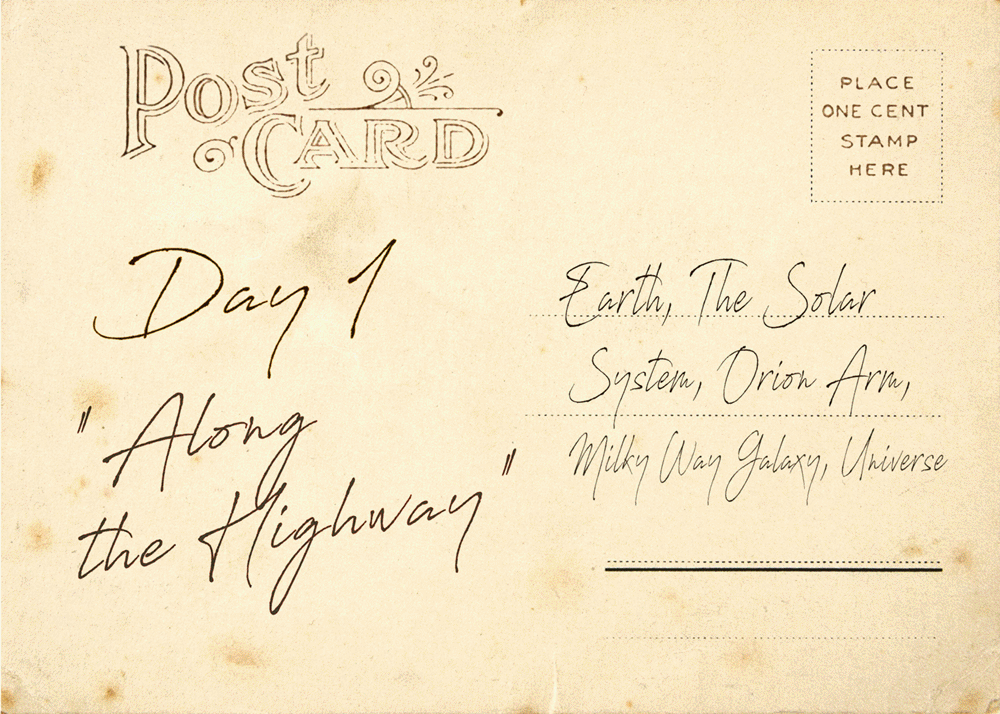 Post
CARD
PLACE
ONE CENT
STAMP
HERE
Day 1
"Along
the Highway"
Earth, The Solar
System, Orion Arm,
Milky Way Galaxy, Universe